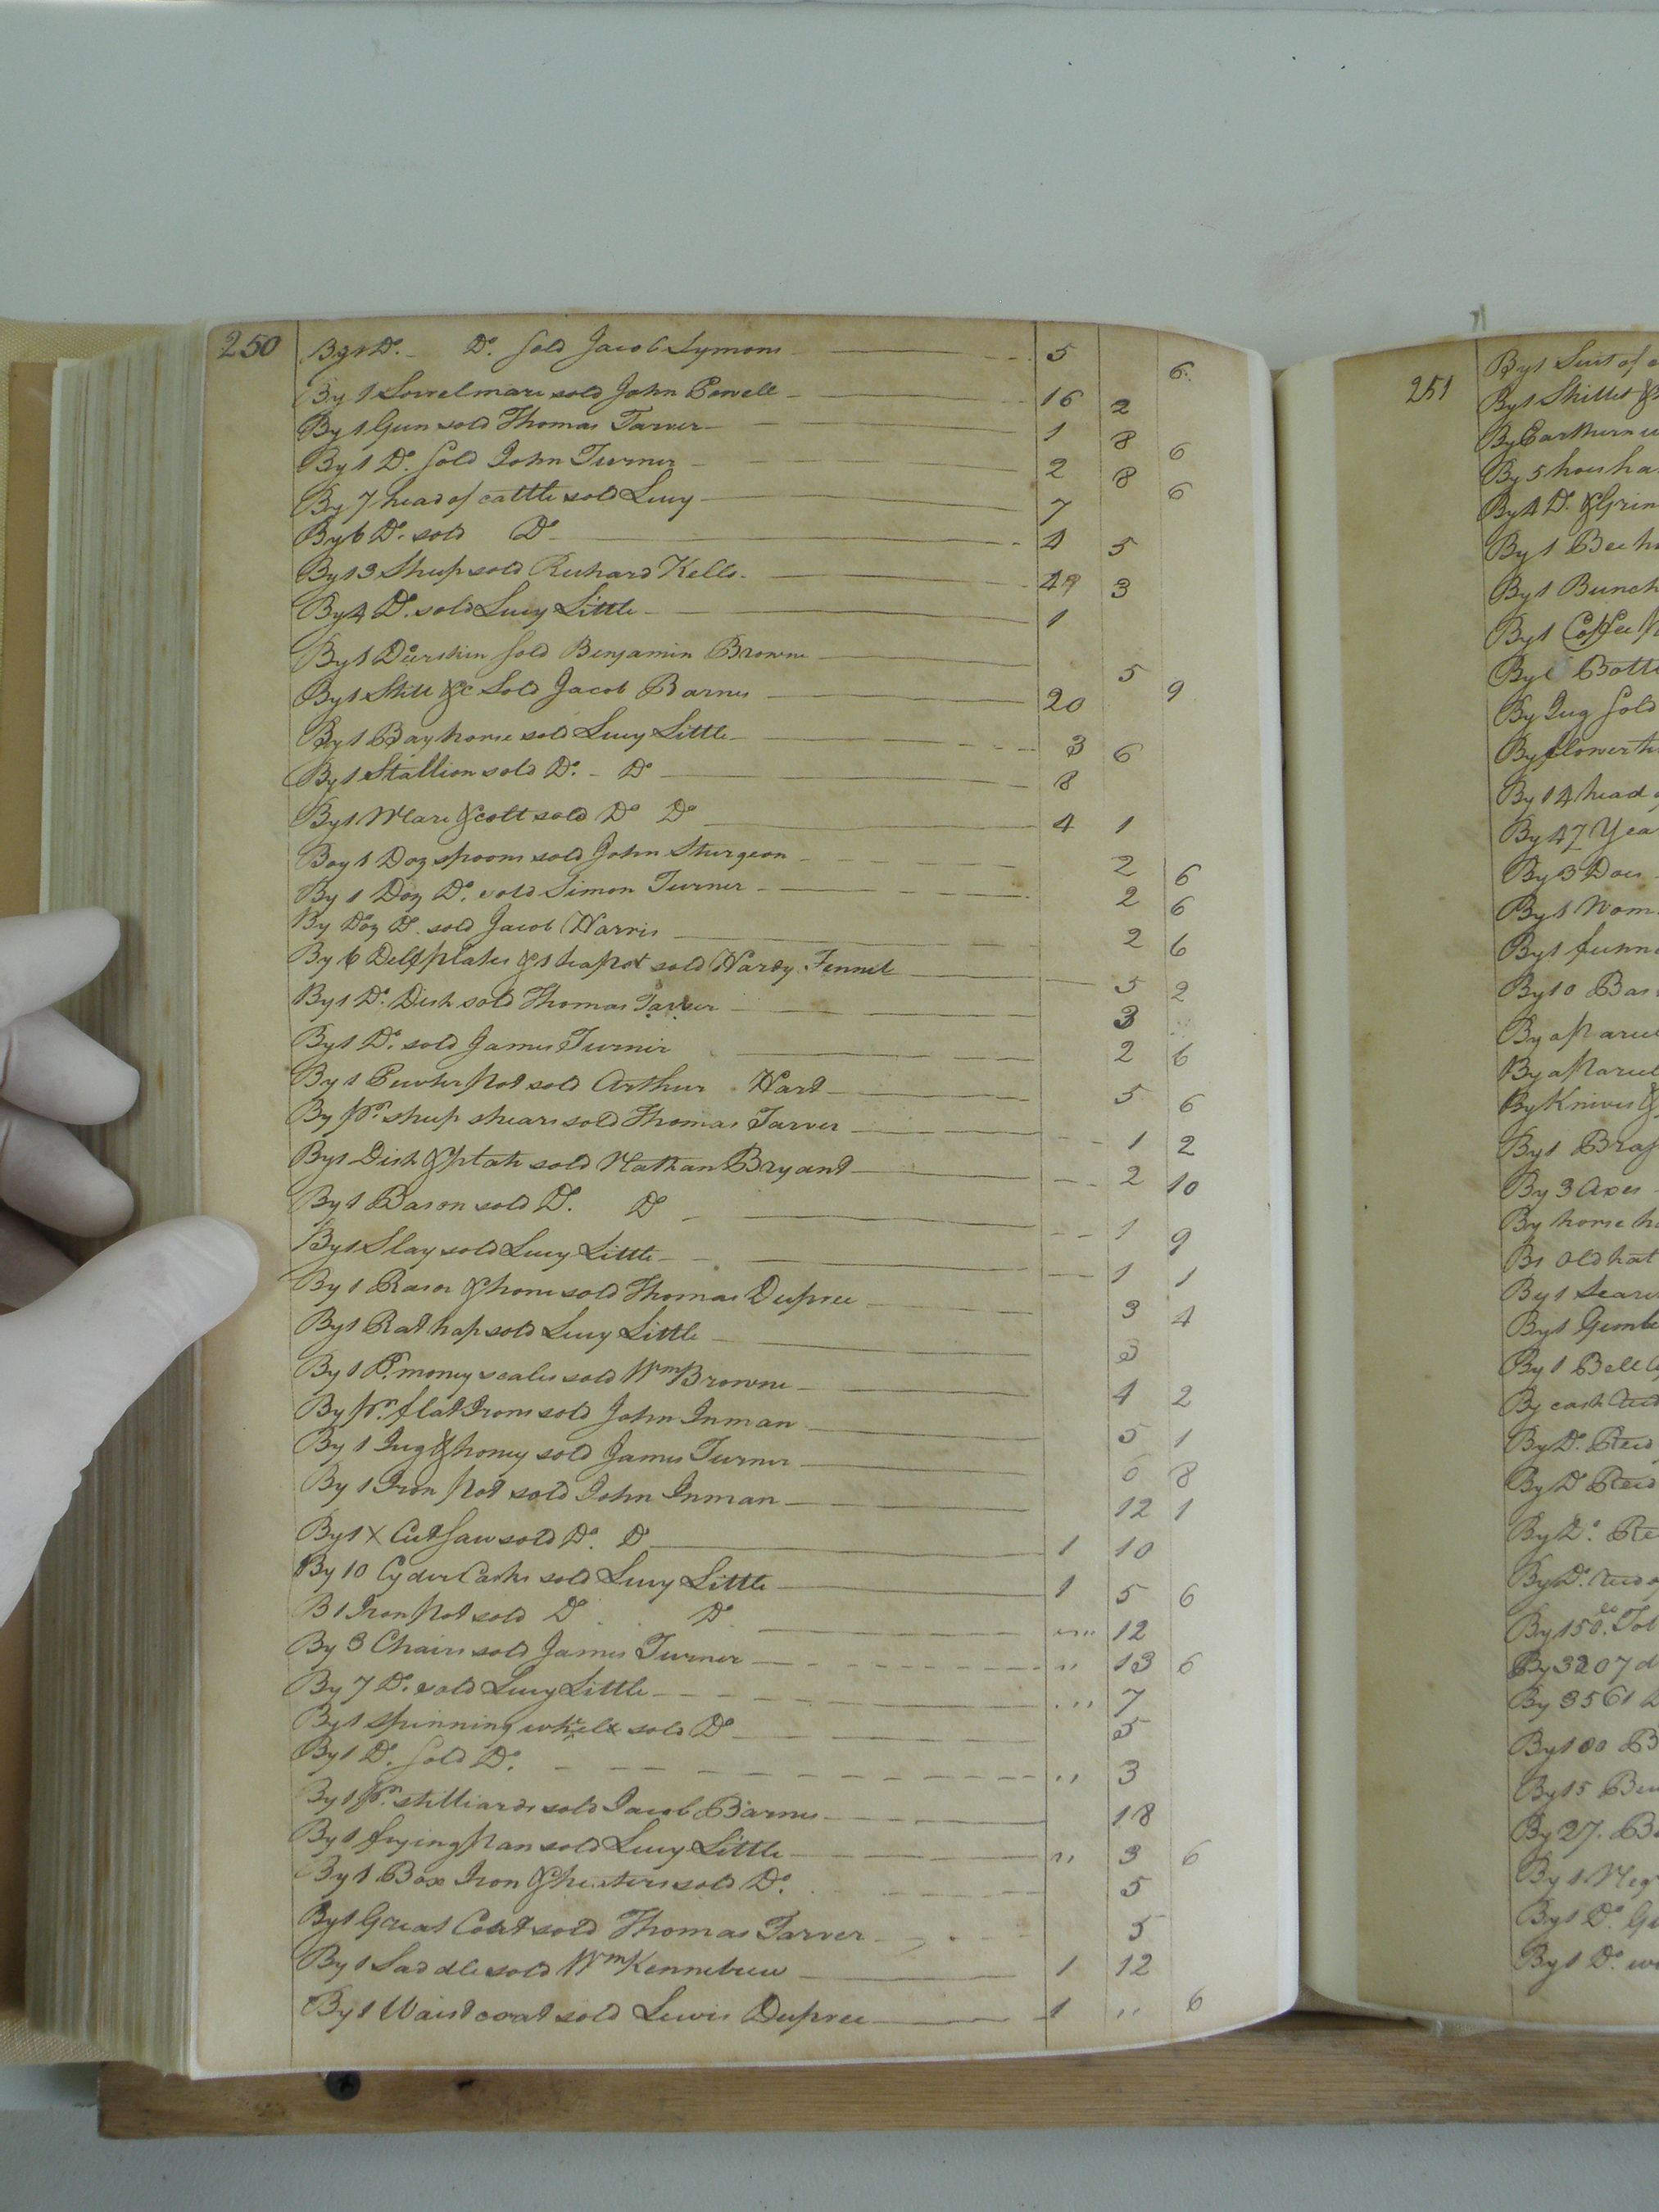 250 By 1 Do. Do. Sold Jacob Symons 5 6
By 1 Sorrel mare sold John Powell 16 2
By 1 Gun sold Thomas Tarver 1 8 6
By 1 Do. Sold John Turner 2 8 6
By 7 head of cattle sold Lucy 7
By 6 Do. sold Do 4 5
By 13 Sheep sold Richard Kello 49 3
By 4 Do. sold Lucy Little 1
By 1 Deerskin Sold Benjamin Browne 5
By 1 Still &c Sold Jacob Barnes 20 9
By 1 Bay horse sold Lucy Little 3 6
By 1 Stallion sold Do. Do 8
By 1 Mare & colt sold Do Do 4 1
Boy 1 Doz spoons sold John Sturgeon 2 6
By 1 Doz Do. sold Simon Turner 2 6
By Doz Do. sold Jacob Harris 2 6
By 6 Delf plates & 1 teapot sold Hardy Fennel 5 2
By 1 Do. Dish sold Thomas Tarver 3
By 1 Do. sold James Turner 2 6
By 1 Pewter pot sold Arthur Hart 5 6
By pr. sheep shears sold Thomas Tarver 1 2
By 1 Dish & plate sold Nathan Bryant 2 10
By 1 Bason sold Do. Do 1 9
By 1 Slay sold Lucy Little 1 1
By 1 Rasor & hone sold Thomas Dupree 3 4
By 1 Rat trap sold Lucy Little 3
By 1 Pr. money scales sold Wm Browne 4 2
By pr. flat Irons sold John Inman 5 1
By 1 Jug & honey sold James Turner 6 8
By 1 Iron pot sold John Inman 12 1
By 1 X Cut Saw sold Do. Do 1 10
By 10 Cyder Casks sold Lucy Little 1 5 6
B 1 Iron pot sold Do Do " 12
By 3 Chairs sold James Turner " 13 6
By 7 Do. sold Lucy Little " 7
By 1 spinning wheel sold Do 5
By 1 Do. Sold Do. " 3
By 1 pr. stilliards sold Jacob Barnes 18
By 1 frying pan sold Lucy Little " 3 6
By 1 Box Iron & heaters sold Do. 5
By 1 Great Coat sold Thomas Tarver 5
By 1 Saddle sold Wm Kennebrew 1 12
By 1 Waistcoat sold Lewis Dupree 1 " 6
251 By 1 Suit of
By 1 Skillet &
By Earthern
By 5
By 4 Do. &
By 1 Bee
By 1 Bunch
By 1 Coffee
By Bottl
By Jug Sold
By
By 14 head
By 47 Yea
By 3 Does
By 1 Wom
By 1 funn
By 10 Bas
By a Parcel
By a Parcel
By Knives &
By 1 Bras
By 3 Axes
By horse
By Old hat
By 1
By 1 Gimb
By 1 Bell
By cash
By Do. Recd
By Do Recd
By Do. Re
By Do.
By 150 lb. Tob
By 3207
By 3561
By 100 B
By 15
By 27. B
By 1 Neg
By 1 Do.
By 1 Do.